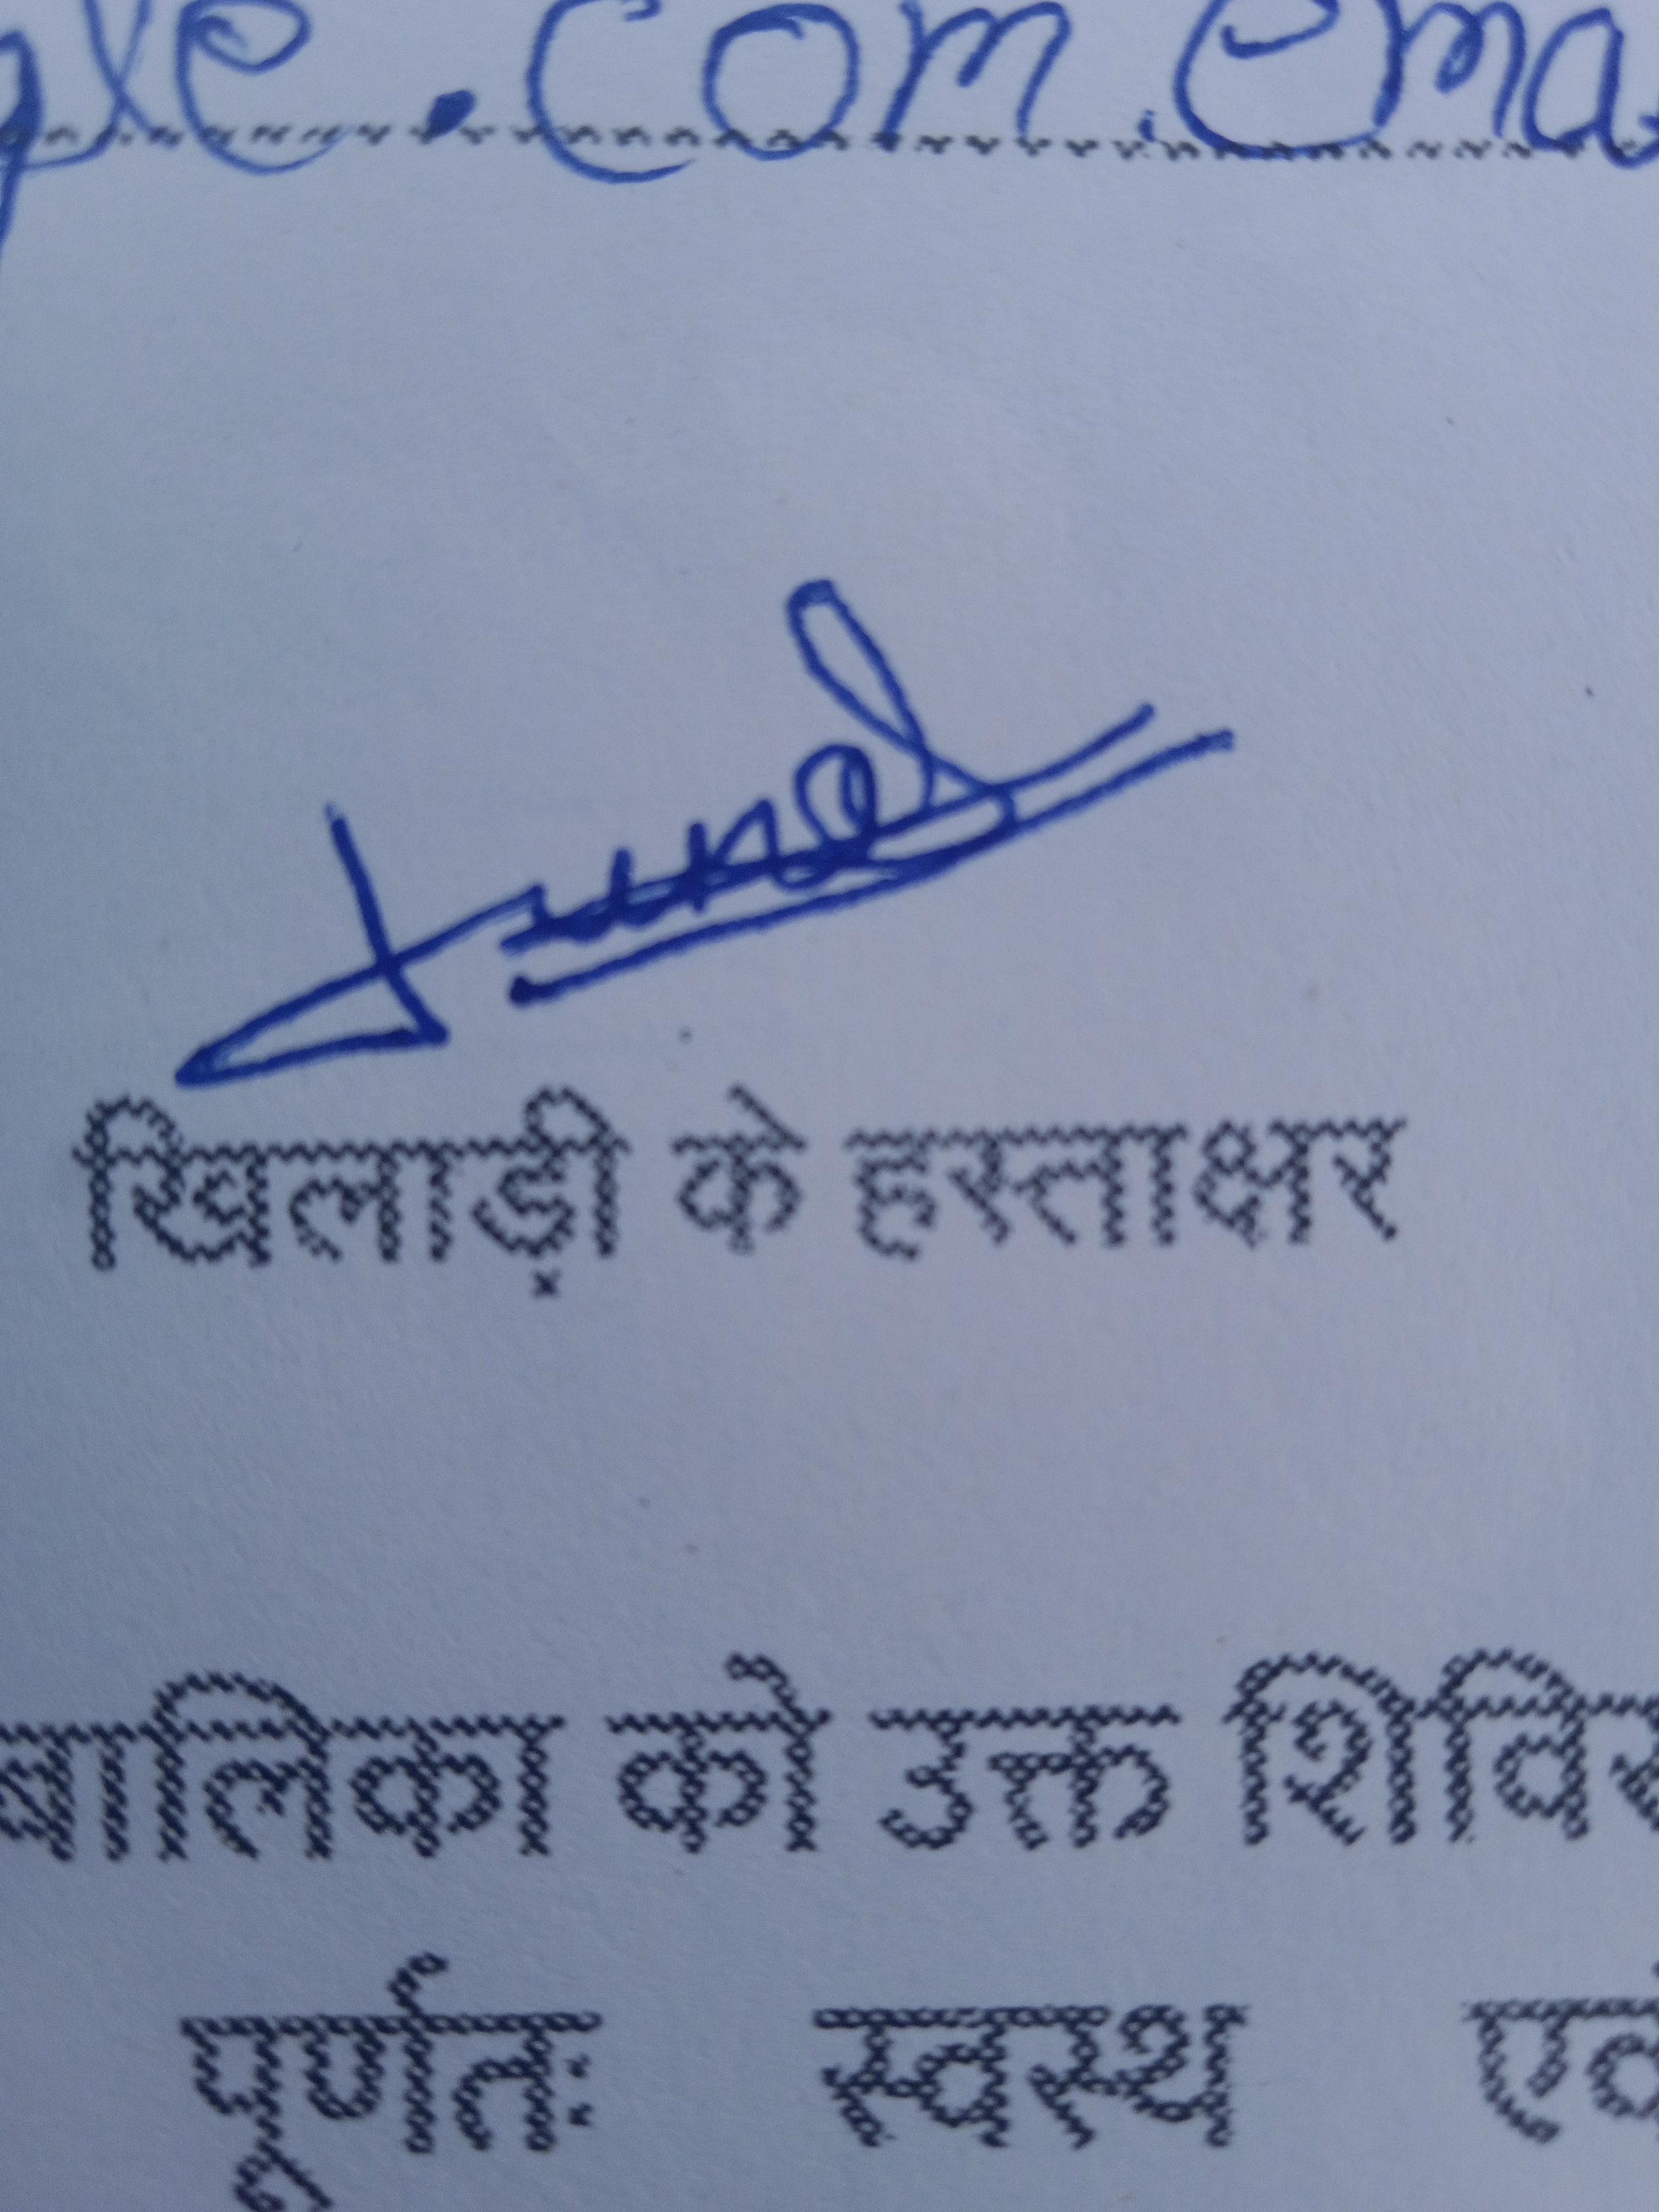 gle.com ema
खिलाड़ी के हस्ताक्षर
बालिका को उक्त शिविर
पूर्णतः स्वस्थ एवं